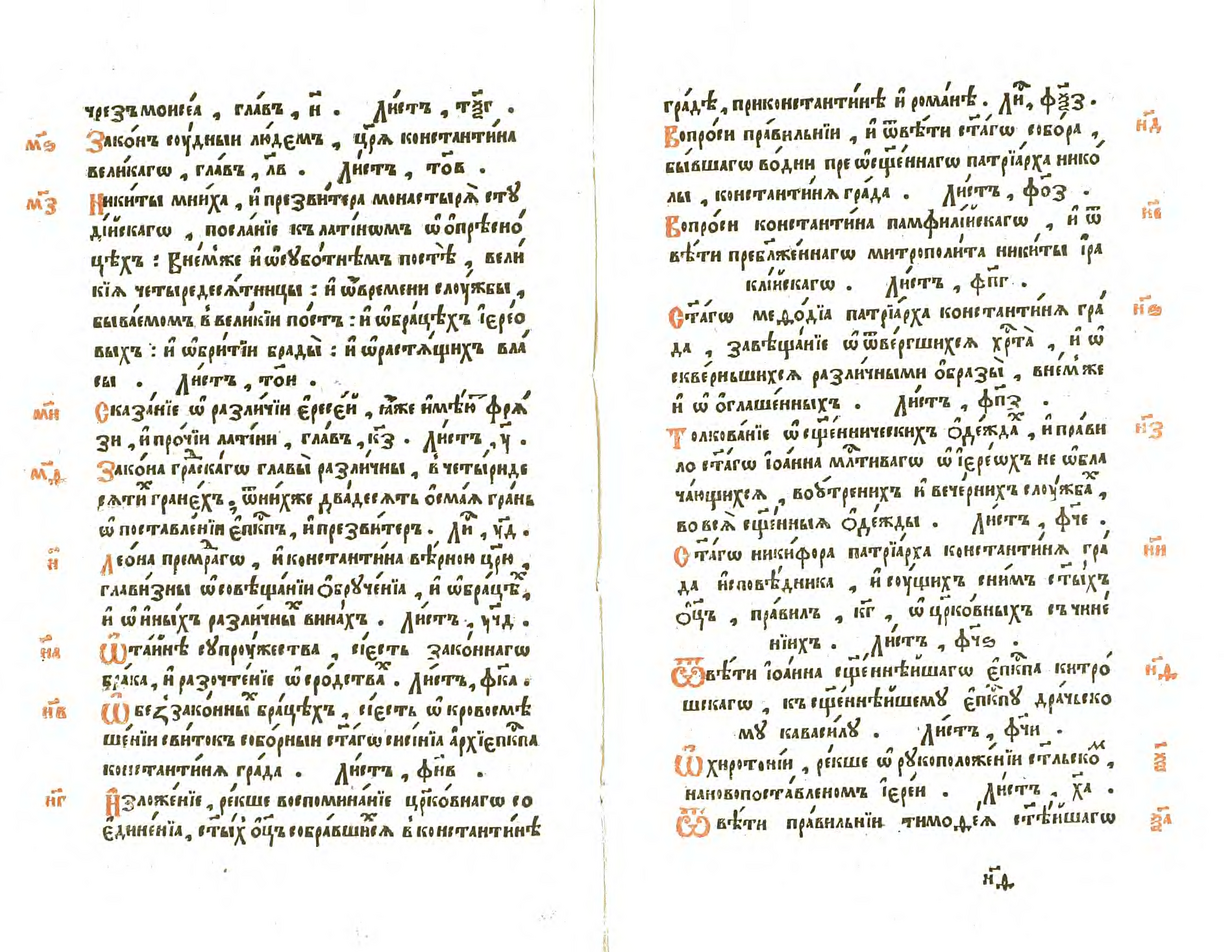 чрезъ моисеа , гла́въ , н҃ . Ли́стъ , тѯ҃г .
м҃ѕ Зако́нъ соу́дныи лю́демъ , цр҃я константи́на
вели́кагѡ , гла́въ , л҃в . Ли́стъ , то҃в .
м҃з Ники́ты мни́ха , и҆ презви́тера монастыря̀ сту
ді́йскагѡ , посла́нїе къ лати́нѡмъ ѡ҆ ѻ҆прѣсно́
цѣхъ : Вне́мже и҆ ѡ҆ суббо́тнѣмъ постѣ̀ , вели
кїѧ четыредесѧ́тницы : и҆ ѡ҆ времени слоу́жбы ,
быва́емомъ в вели́кїи по́стъ : и҆ ѡ҆ бра́цѣхъ і҆ерео́
выхъ : и҆ ѡ҆ бри́тїи брады̀ : и҆ ѡ҆ растѧ́щихъ вла
сы . Ли́стъ , то҃и .
м҃и Сказа́нїе ѡ҆ разли́чїи є҆ресе́й , ꙗ҆́же и҆мѣ́ю фрѧ́
зи , и҆ про́чїи лати́ни , гла́въ , к҃з . Ли́стъ , у҃ .
м҃ѳ Зако́на гра́скагѡ главы̀ разли́чны , в четы́риде
сѧти гране́хъ , ѿ ни́хже два́десѧть ѻ҆сма́ѧ гра́нь
ѡ҆ поставле́нїи є҆пк҃пъ , и҆ презви́теръ . Ли , у҃д .
н҃ Лео́на премрагѡ , и҆ константи́на вѣ́рною цр҃ю ,
глави́зны ѡ҆ совѣща́нїи ѻ҆бруче́нїа , и҆ ѡ҆ бра́цѣ ,
и҆ ѡ҆ и҆ны́хъ разли́чны вина́хъ . Ли́стъ , у҃чд .
н҃а Ѡ҆ та́инѣ супроу́жества , сїесть зако́ннагѡ
бра́ка , и҆ разочте́нїе ѡ҆ сро́дства . Ли́стъ , фк҃а .
н҃в Ѡ҆ беззако́нны бра́цѣхъ , сїесть ѡ҆ кровосмѣ
ше́нїи сви́токъ собо́рныи ст҃а́гѡ сиси́нїа а҆рхїепк҃па
константи́нѧ гра́да . Ли́стъ , фн҃в .
н҃г И҆зложе́нїе , ре́кше воспомина́нїе цр҃ко́внагѡ со
є҆дине́нїа , ст҃ы́х ѻ҆ц҃ъ собра́вшихсѧ в константи́нѣ
гра́дѣ , при константи́нѣ и҆ рома́нѣ . Ли , фѯ҃з .
н҃д Вопро́си пра́вильнїи , и҆ ѿвѣ́ти ст҃а́гѡ собо́ра ,
бы́вшагѡ во дни преѡ҆сщ҃е́ннагѡ патрїа́рха нико́
лы , константи́нѧ гра́да . Ли́стъ , фо҃з .
н҃е Вопро́си константи́на памфилі́йскагѡ , и҆ ѿ
вѣти пребл҃же́ннагѡ митрополи́та ники́ты і҆ра
клі́йскагѡ . Ли́стъ , фп҃г .
н҃ѕ Ст҃а́гѡ меѳо́дїа патрїа́рха константи́нѧ гра́
да , завѣща́нїе ѡ҆ ѿве́ргшихсѧ хр҃та̀ , и҆ ѡ҆
скве́рньшихсѧ разли́чными ѻ҆́бразы , вне́мже
и҆ ѡ҆ ѻ҆глаше́нныхъ . Ли́стъ , фп҃з .
н҃з Толкова́нїе ѡ҆ сщ҃е́нническихъ ѻ҆де́жда , и҆ пра́ви
ло ст҃а́гѡ і҆оа́нна мл҃тиваго ѡ҆ і҆ере́ѡхъ не ѡ҆бла
ча́ющихсѧ , во у҆́тренихъ и҆ вече́рнихъ слоу́жба ,
во всѧ̀ сщ҃е́нныѧ ѻ҆де́жды . Ли́стъ , фч҃е .
н҃и Ст҃а́гѡ ники́фора патрїа́рха константи́нѧ гра́
да и҆сповѣ́дника , и҆ соу́щихъ сни́мъ ст҃ы́хъ
ѻ҆ц҃ъ , пра́вилъ , к҃г , ѡ҆ цр҃ко́вныхъ съчине́
нїихъ . Ли́стъ , фч҃ѕ .
н҃ѳ Ѿвѣ́ти і҆оа́нна сщ҃еннѣ́йшагѡ є҆пк҃па китро́
шскагѡ , къ сщ҃еннѣ́йшему є҆пк҃пу драчьско
му кавасилу . Ли́стъ , фч҃и .
ѯ҃ Ѡ҆ хиротоні́и , ре́кше ѡ҆ рукоположе́нїи ст҃льско́ ,
на новопоста́вленомъ і҆ере́и . Ли́стъ , х҃а .
ѯ҃а Ѿвѣ́ти пра́вильнїи тимоѳе́ѧ ст҃ѣ́йшагѡ
н҃ѳ